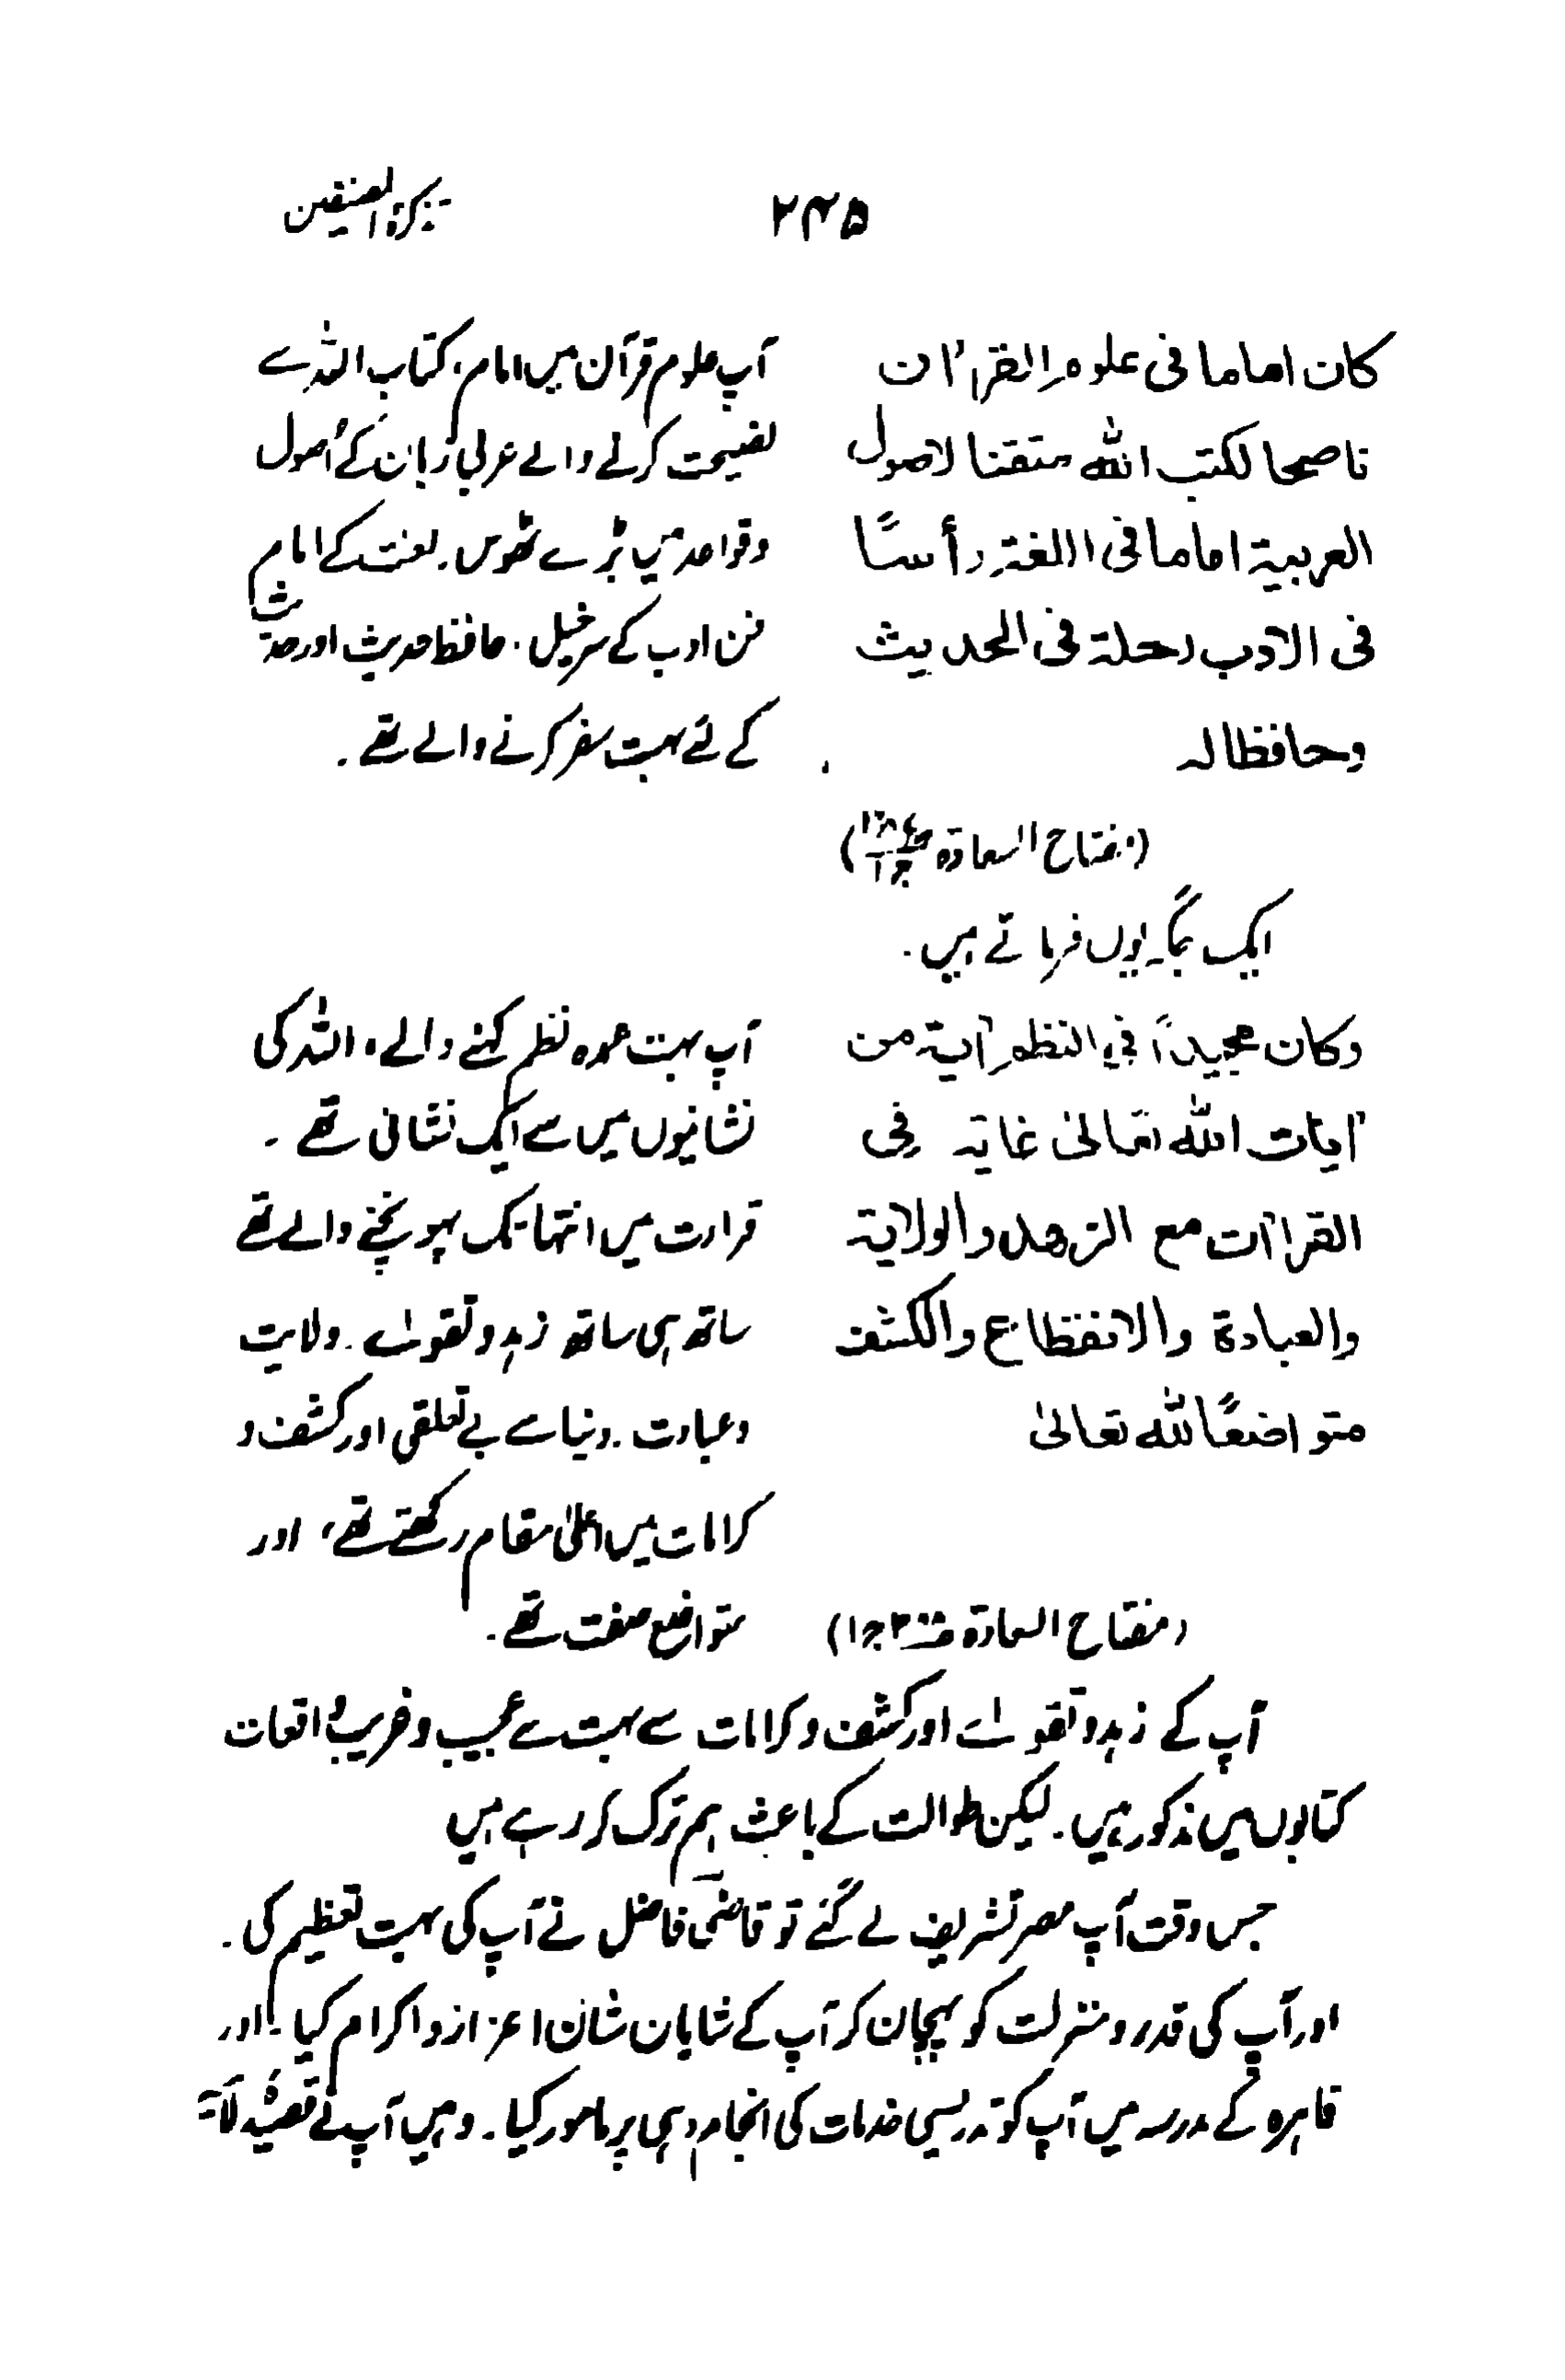 ۲۴۵ تذکرۃ المصنفین
کان اماما فی علوم القراٰن
ناصحا لکتب اللہ متقنا لاصول
العربیۃ اماما فی اللغۃ رأسًا
فی الادب رحلۃ فی الحدیث
وحافظا لہ
(مفتاح السعادۃ)
آپ علوم قرآن میں امام، کتاب اللہ سے
نصیحت کرنے والے عربی زبان کے اُصول
وقواعد میں بڑے ٹھوس. لغت کے امام
فن ادب کے سرخیل. حافظ حدیث اور حدیث
کے لئے بہت سفر کرنے والے تھے.
ایک جگہ یوں فرماتے ہیں.
وکان مجیداً فی النظم اٰیۃ من
اٰیات اللہ تعالیٰ غایۃ فی
القراٰت مع الزھد والولایۃ
والعبادۃ والانقطاع والکشف
متواضعًا للہ تعالیٰ
(مفتاح السعادۃ)
آپ بہت عمدہ نظم کہنے والے، اللہ کی
نشانیوں میں سے ایک نشانی تھے۔
قرارت میں انتہا تک پہونچنے والے تھے
ساتھ ہی ساتھ زہد و تقوےٰ. ولایت
وعبادت. دنیا سے بے تعلقی اور کشف و
کرامات میں اعلیٰ مقام رکھتے تھے، اور
متواضع صفت تھے.
آپ کے زہد و تقوےٰ اور کشف و کرامات سے بہت سے عجیب و غریب واقعات
کتابوں میں مذکور ہیں. لیکن طوالت کے باعث ہم ترک کر رہے ہیں
جس وقت آپ مصر تشریف لے گئے تو قاضی فاضل نے آپ کی بہت تعظیم کی.
اور آپ کی قدر و منزلت کو پہچان کر آپ کے شایان شان اعزاز و اکرام کیا. اور
قاہرہ کے مدرسہ میں آپ کو تدریسی خدمات کی انجام دہی پر مامور کیا. وہیں آپ نے قصیدہ